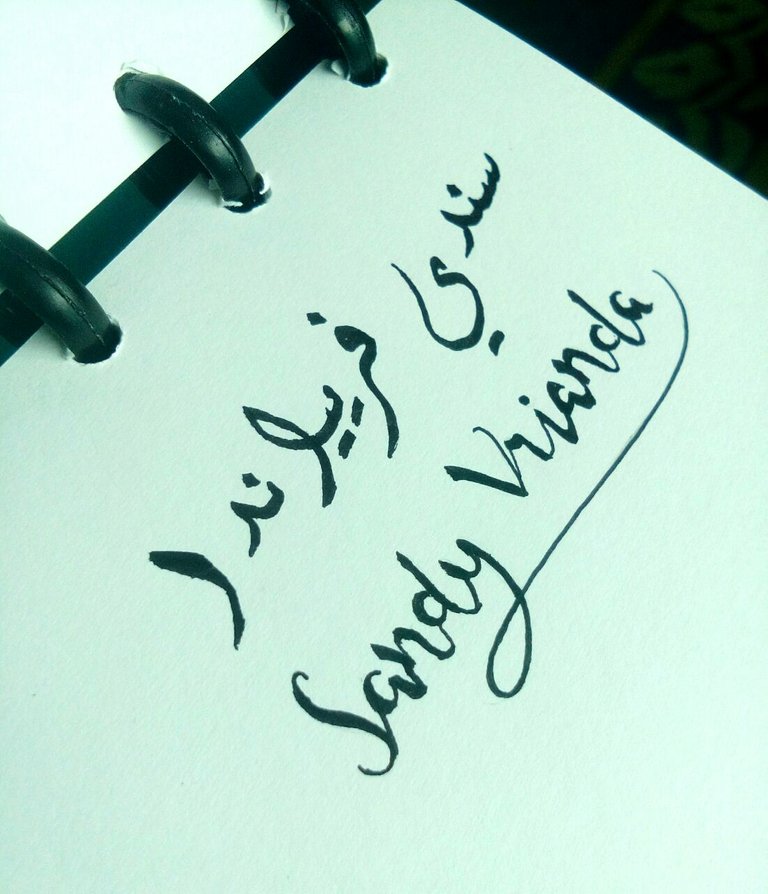 سندي فريندا
Sandy Vrianda